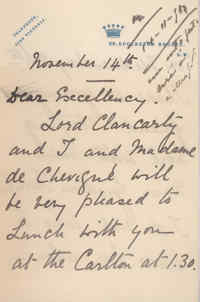 November 14th
Dear Excellency.
Lord Clancarty
and I and Madame
de Chevigné will
be very pleased to
Lunch with you
at the Carlton at 1.30.